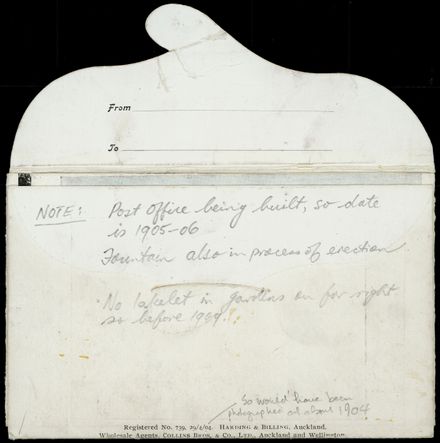 From
To
NOTE: Post Office being built, so date
is 1905-06
Fountain also in process of erection
No in gardens on far right
so before
So would have been
photographed about 1904
Registered No. 739, 29/2/04. HARDING & BILLING, Auckland.
Wholesale Agents, COLLINS BROS. & CO., LTD., Auckland and Wellington.